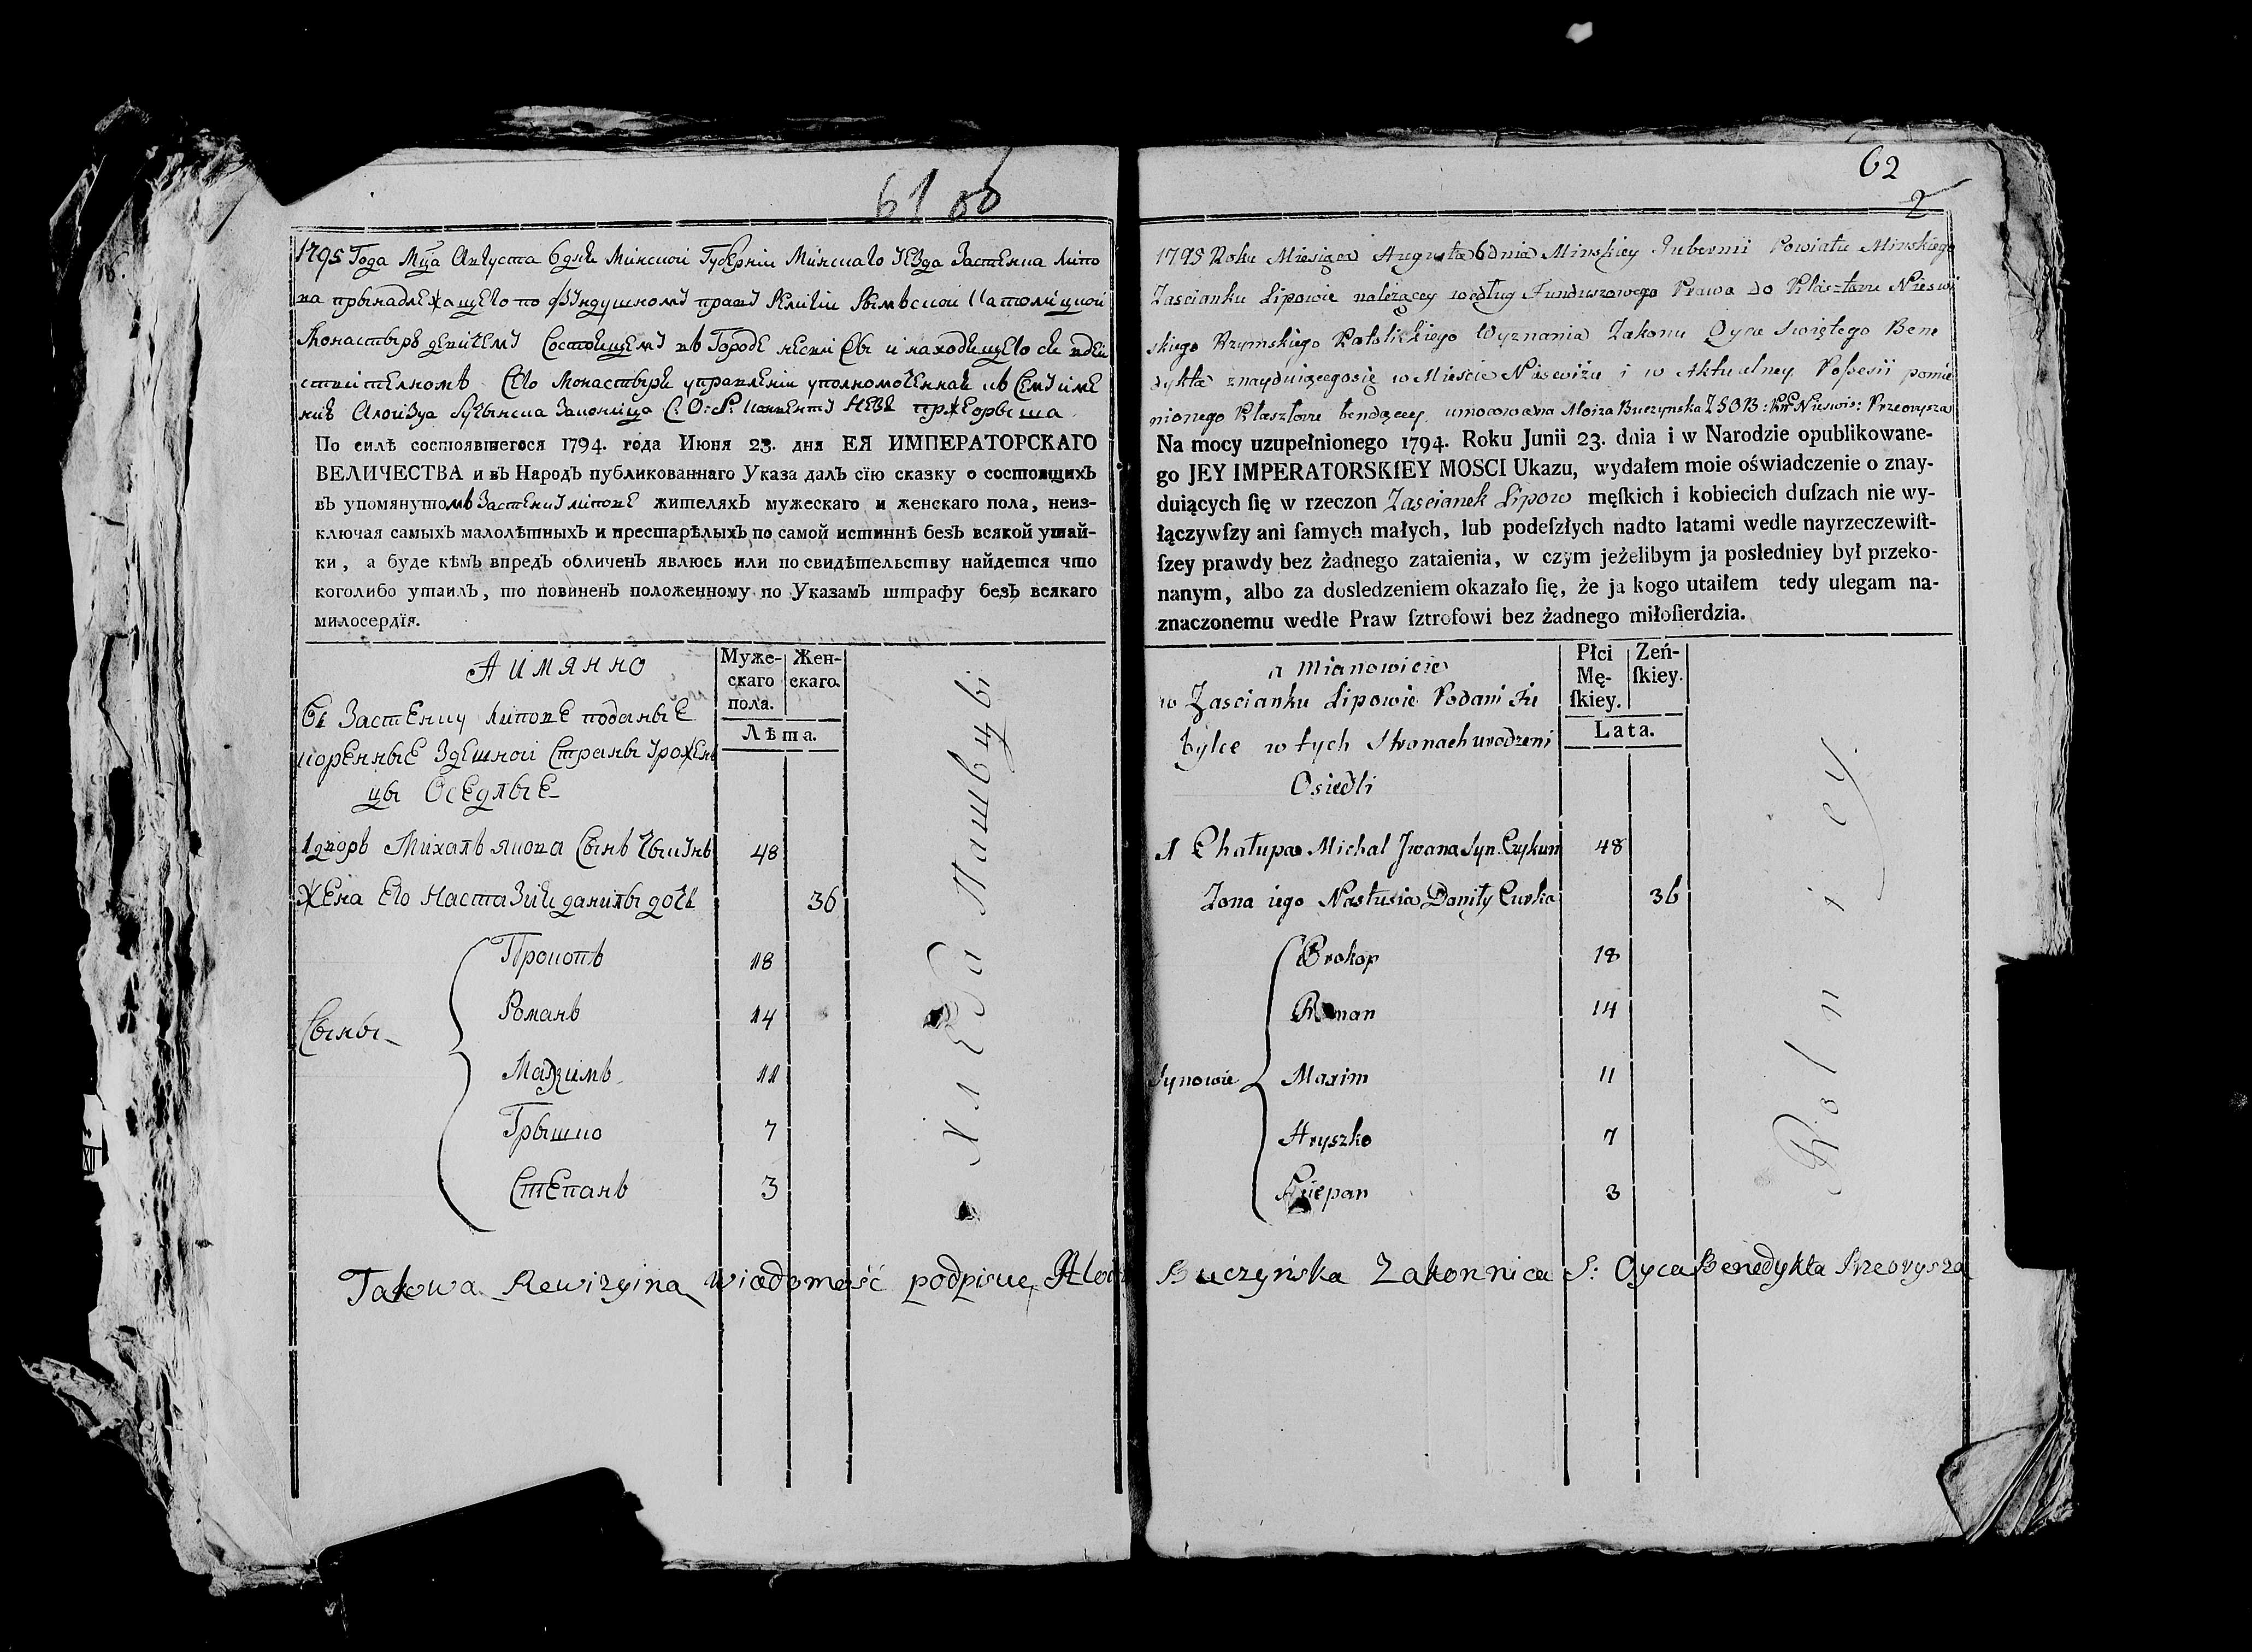 61 об
1795 Года Мца Августа 6 дня Минской Губерніи Минскаго Уезда Застенка Липо
ва прынадлежащего по фундушному праву Религіи Рымъской Католицкой
Монастырѣ девичему Состоящему въ Городе и находящегося въ дей
ствителномъ Сего Монастыря управленіи уполномоченная въ Сему име
нію Алоизуа Бучынска Законица С. О. Б. пржеорыша
По силѣ состоявшегося 1794. года Июня 23. дня ЕЯ ИМПЕРАТОРСКАГО
ВЕЛИЧЕСТВА и въ Народъ публикованнаго Указа далъ сїю сказку о состоящихъ
въ упомянутомъ Застенку Липове жителяхъ мужескаго и женскаго пола, неиз-
ключая самыхъ малолѣтныхъ и престарѣлыхъ по самой истиннѣ безъ всякой утай-
ки, а буде кѣмъ впредъ обличенъ явлюсь или по свидѣтельству найдется что
коголибо утаилъ, то повиненъ положенному по Указамъ штрафу безъ всякаго
милосердїя.
А имянно
Муже-
скаго
пола.
Жен-
скаго.
Лѣта.
Въ Застенку Липове поданые
коренные Здешной Страны урожен
цы Оседлые
1 дворъ Михалъ якова Сынъ Чыкунъ 48
Жена Его Настазия данилы дочь 36
Сыны
Прокопъ 18
Романъ 14
Мақзимъ 11
Грышко 7
Степанъ 3
Хлеба Пашвцы
Takowa Rewizyina wiadomość podpisuę Aloiza Buczyńska Zakonnica S: Oyca Benedykta Przeorysza
62
2
1795 Roku Miesiąca Augusta 6 dnia Minskiey Gubernii Powiatu Minskiego
Zascianku Lipowie należącey według Funduszowego Prawa do Klasztoru Nieswi
skiego Rzymskiego Katolickiego Wyznania Zakonu Oyca Swiętego Bene
dykta znayduiącegosię w Mieście Nieswiżu i w Aktualney Possesii pomie
nionego Klasztoru bendącey umocowana Aloiza Buczynska Z S O B: Nieswis: Przeorysza
Na mocy uzupełnionego 1794. Roku Junii 23. dnia i w Narodzie opublikowane-
go JEY IMPERATORSKIEY MOSCI Ukazu, wydałem moie oświadczenie o znay-
duiących ſię w rzeczon Zascianek Lipow męſkich i kobiecich duſzach nie wy-
łączywſzy ani ſamych małych, lub podeſzłych nadto latami wedle nayrzeczewiſt-
ſzey prawdy bez żadnego zataienia, w czym jeżelibym ja posledniey był przeko-
nanym, albo za dosledzeniem okazało ſię, że ja kogo utaiłem tedy ulegam na-
znaczonemu wedle Praw ſztrofowi bez żadnego miłoſierdzia.
a mianowicie
Płci
Mę-
ſkiey.
Zeń-
ſkiey.
Lata.
w Zascianku Lipowie Podani Tu
tylce w tych Stronach urodzeni
Osiedli
1 Chałupa Michal Jwana Syn Czykun 48
Zona iego Nastusia Daniły Curka 36
Synowie
Prokop 18
Roman 14
Maxim 11
Hryszko 7
Sciepan 3
Rolnicy